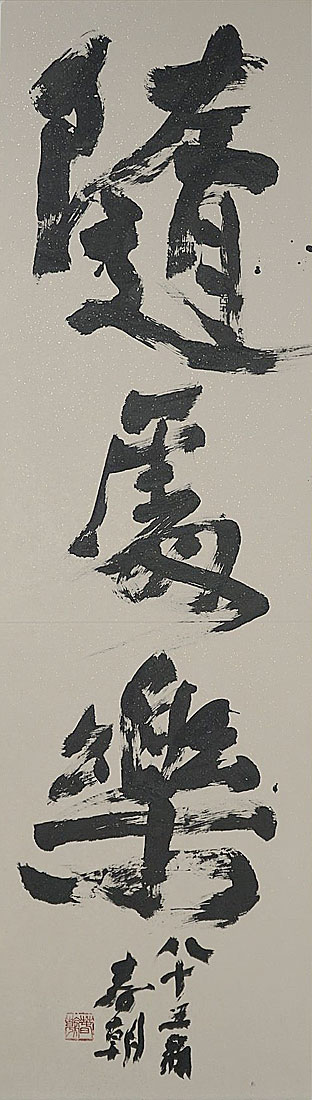 隨處樂
八十五翁
春朝